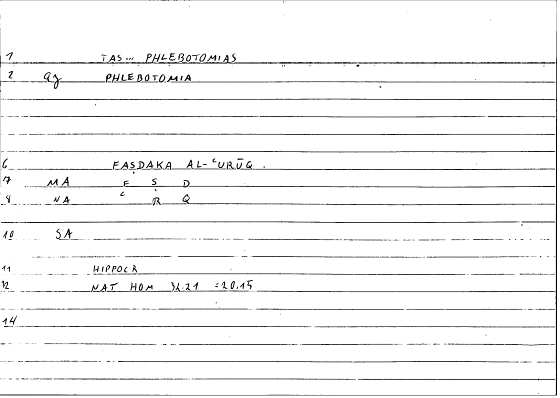 1 TAS... PHLEBOTOMIAS
2 ag PHLEBOTOMIA
6 FAṢDAKA AL-ʿURŪQ.
7 MA F Ṣ D
8 NA ʿ R Q
10 SA
11 HIPPOCR
12 NAT HOM 32.21 =20,15
14